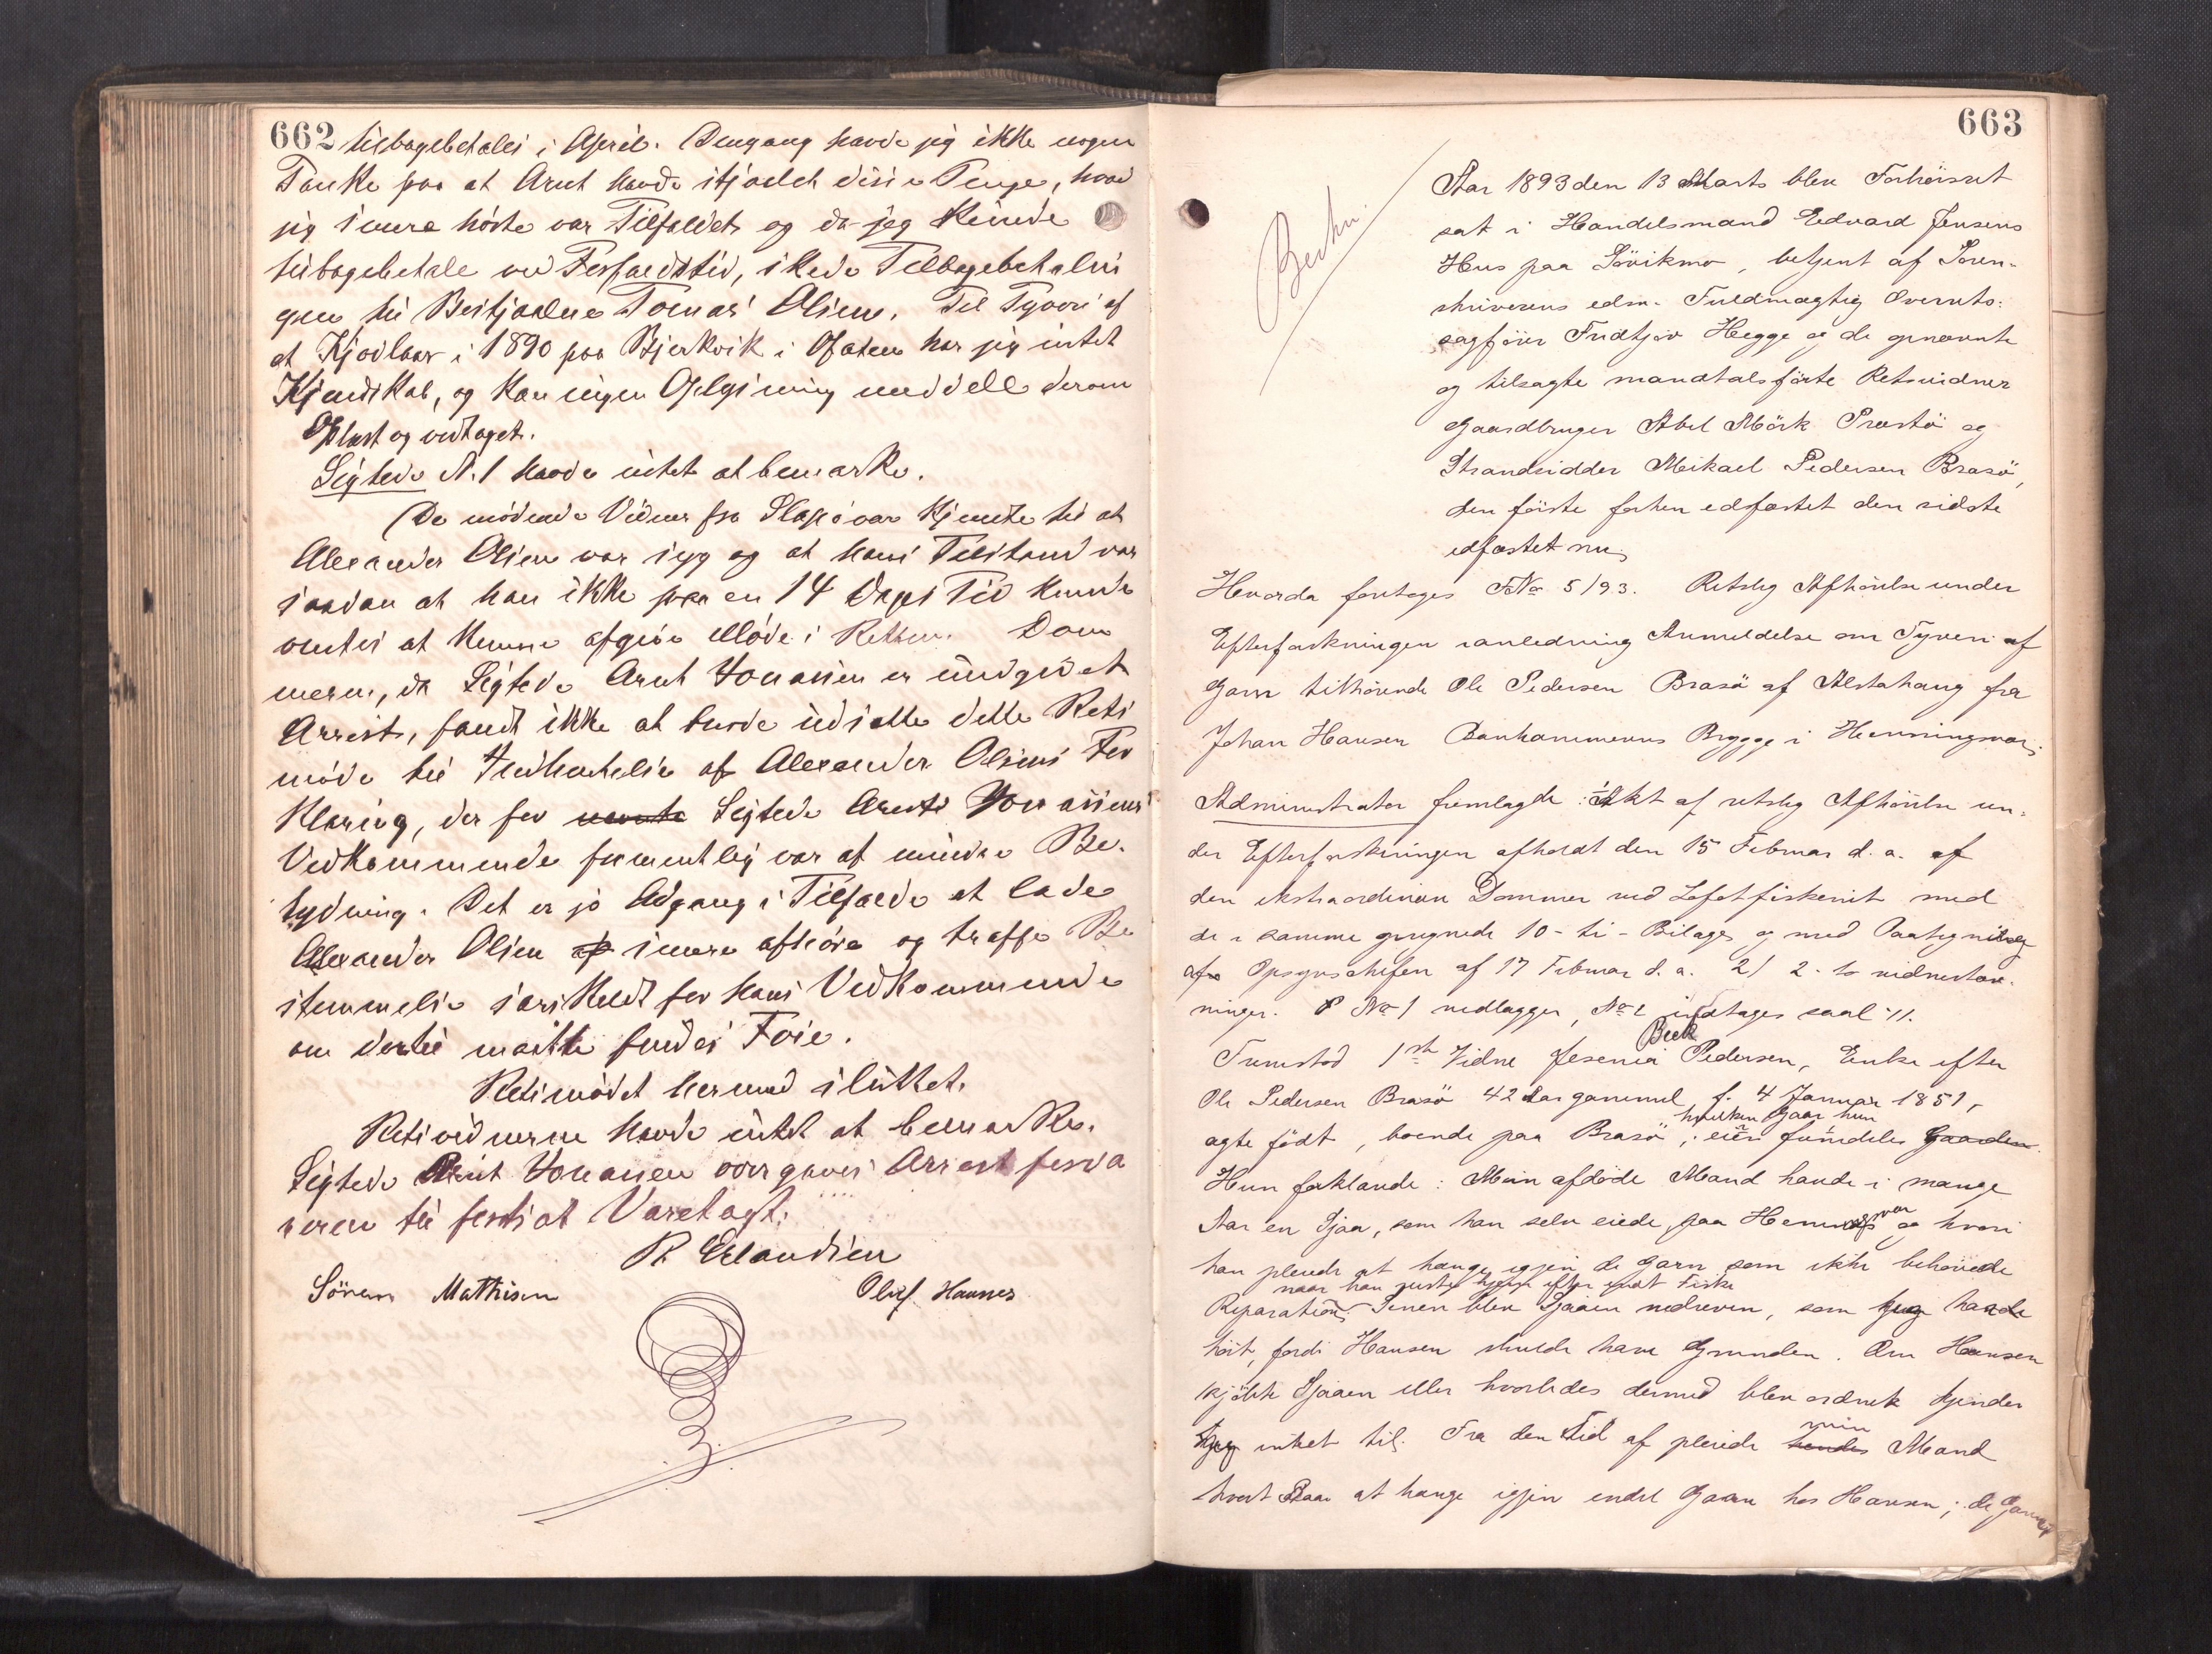 662
tilbagebetales i April. Dengang havde jeg ikke nogen
Tanke paa at Arnt havde stjaalet disse Penge, hvad
jeg senere hörte var Tilfældet, og da jeg kunde
tilbagebetale ved Forfaldstid, skede Tilbagebetalin
gen til Bestjaalne Tomas Olsen. Til Tyveri af
et Kjødlaar i 1890 paa Bjerkvik i Ofoten har jeg intet
Kjendskab, og kan ingen Oplysning meddele derom
Oplæst og vedtaget.
Sigtede N. 1 havde intet at bemærke.
De mödende Vidner fra kjendte til at
Alexander Olsen var syg og at hans Tilstand var
saadan at han ikke paa en 14 Dages Tid kunde
ventes at kunne afgive Möde i Retten. Dom
meren, da Sigtede Arnt Jonassen er undgivet
Arrest, fandt ikke at burde udsætte dette Rets
möde til Indhentelse af Alexander Olsens For
klaring, der for Sigtede Arnt Jonassens
Vedkommende formentlig var af mindre Be-
tydning. Det er jo Adgang i Tilfælde at lade
Alexander Olsen senere afhöre og træffe Be
stemmelse særskildt for hans Vedkommende
om dertil maatte findes Föie.
Retsmödet hermed sluttet.
Retsvidnerne havde intet at bemærke.
Sigtede Arnt Jonassen overgaves Arrestforva
reren til fortsat Varetægt.
R Erlandsen
Sören Mathisen Oluf Hannes
663
Aar 1893 den 13 Marts blev Forhörsret
sat i Handelsmand Edvard Jensens
Hus paa Sövikmo, betjent af Soren-
skriverens edsv. Fuldmægtig Overrets-
sagförer Fridtjov Hegge og de gennævnte
og tilsagte mandtalsförte Retsvidner
Gaardbruger Abel Mörk Præstö og
Strandsidder Mikael Pedersen Brasö,
den förste forhen edfæstet den sidste
edfæstet nu,
Hvorda foretoges FNo 5/93. Retslig Afhörelse under
Efterforskningen ianledning Anmeldelse om Tyveri af
Garn tilhörende Ole Pedersen Brasö af Alstahaug fra
Johan Hansen Brygge i Henningsvær.
Administrator fremlagde: 1/ Akt af retslig Afhörelse un-
der Efterforskningen afholdt den 15 Februar d. a. af
den ekstraordinære Dommer ved Lofotfiskeriet med
de i samme gregnede 10 - ti - Bilager og med Paategning
af Opsynschefen af 17 Februar d. a. 2/ 2 - to vidnestæv-
ninger. No 1 vedlægges, No 2 indtages saal: 11.
Fremstod 1ste Vidne Jesenia Beck Pedersen, Enke efter
Ole Pedersen Brasö 42 Aar gammel, f. 4 Januar 1851,
ægte födt, boende paa Brasö, hvilken Gaar hun eier fremdeles Gaarden.
Hun forklarede: Min afdöde Mand havde i mange
Aar en Sjaa, som han selv eiede, paa Henningsvær og hvori
han pleiede at hænge igjen de Garn som ikke behövede
Reparation, naar han reiste hjem efter endt Fiske
Senere blev Sjaaen nedreven, som jeg havde
hört, fordi Hansen skulde have Grunden. Om Hansen
kjöbte Sjaaen eller hvorledes dermed blev ordnet kjender
jeg intet til. Fra den Tid af pleiede hendes min Mand
hvert Aar at hænge igjen endel Garn hos Hansen; de Garn